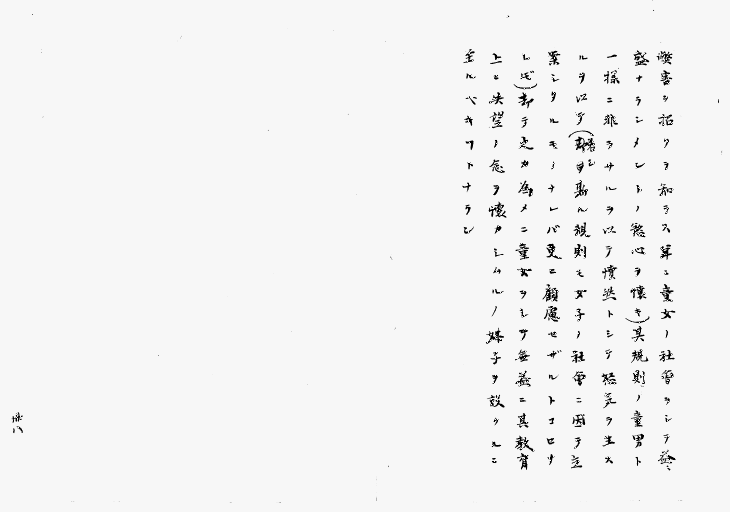 弊害ヲ招クヲ知ラス單ニ童女ノ社會ヲシテ益々
盛ナラシメントノ慾心ヲ懷キ)其規則ノ童男ト
一様ニ非ラサルヲ以テ憤然トシテ怒気ヲ生ス
ルヲ以テ(ル規則モ女子ノ社會ニ因テ立
案シタルモノナレバ更ニ顧慮セザルトコロナ
レ𪜈)却テ之カ為メニ童女ヲシテ無益ニ其教育
上ニ失望ノ念ヲ懷カシムルノ媒子ヲ設クルニ
至ルベキコトナラン